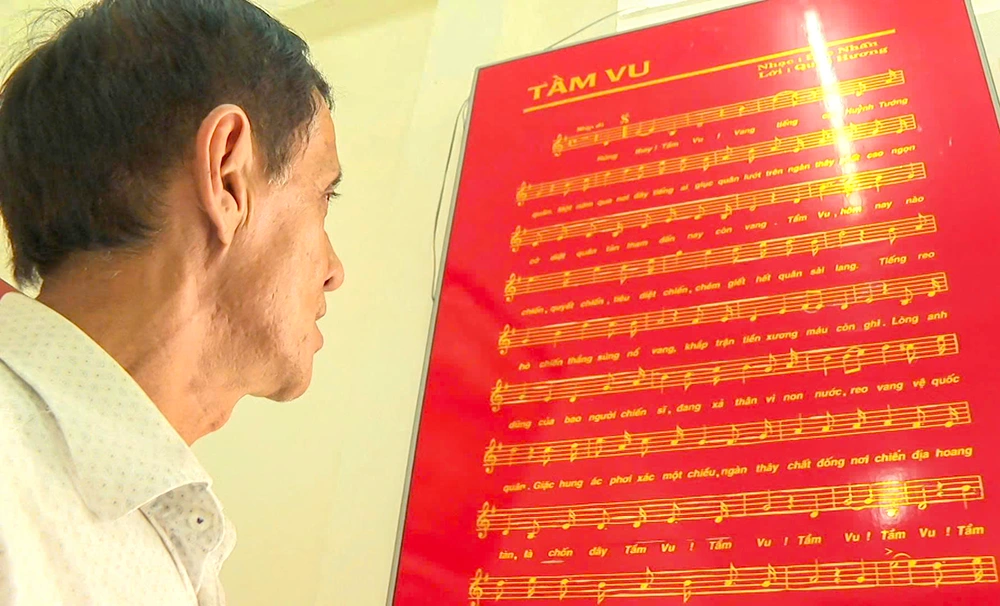 TẦM VU
Nhạc : Nhẩn
Lời : Hương
Nhịp đi
Rừng thay! Tầm Vu, Vang tiếng Huỳnh Tướng
quân. Một năm qua nơi đây tiếng sĩ giục quân lướt trên ngàn thây cao ngọn
cờ diệt quân tàn tham đến nay còn vang. Tầm Vu, hôm nay nào
chiến, quyết chiến, tiêu diệt chiến, chém giết hết quân sài lang. Tiếng reo
hò chiến thắng súng nổ vang, khắp trận tiền xương máu còn ghi. Lòng anh
dũng của bao người chiến sĩ, đang xả thân vì non nước, reo vang vệ quốc
quân. Giặc hung ác phơi xác một chiều, ngàn thây chất đống nơi chiến địa hoang
tàn, là chốn đây Tầm Vu ! Tầm Vu ! Tầm Vu! Tầm Vu ! Tầm